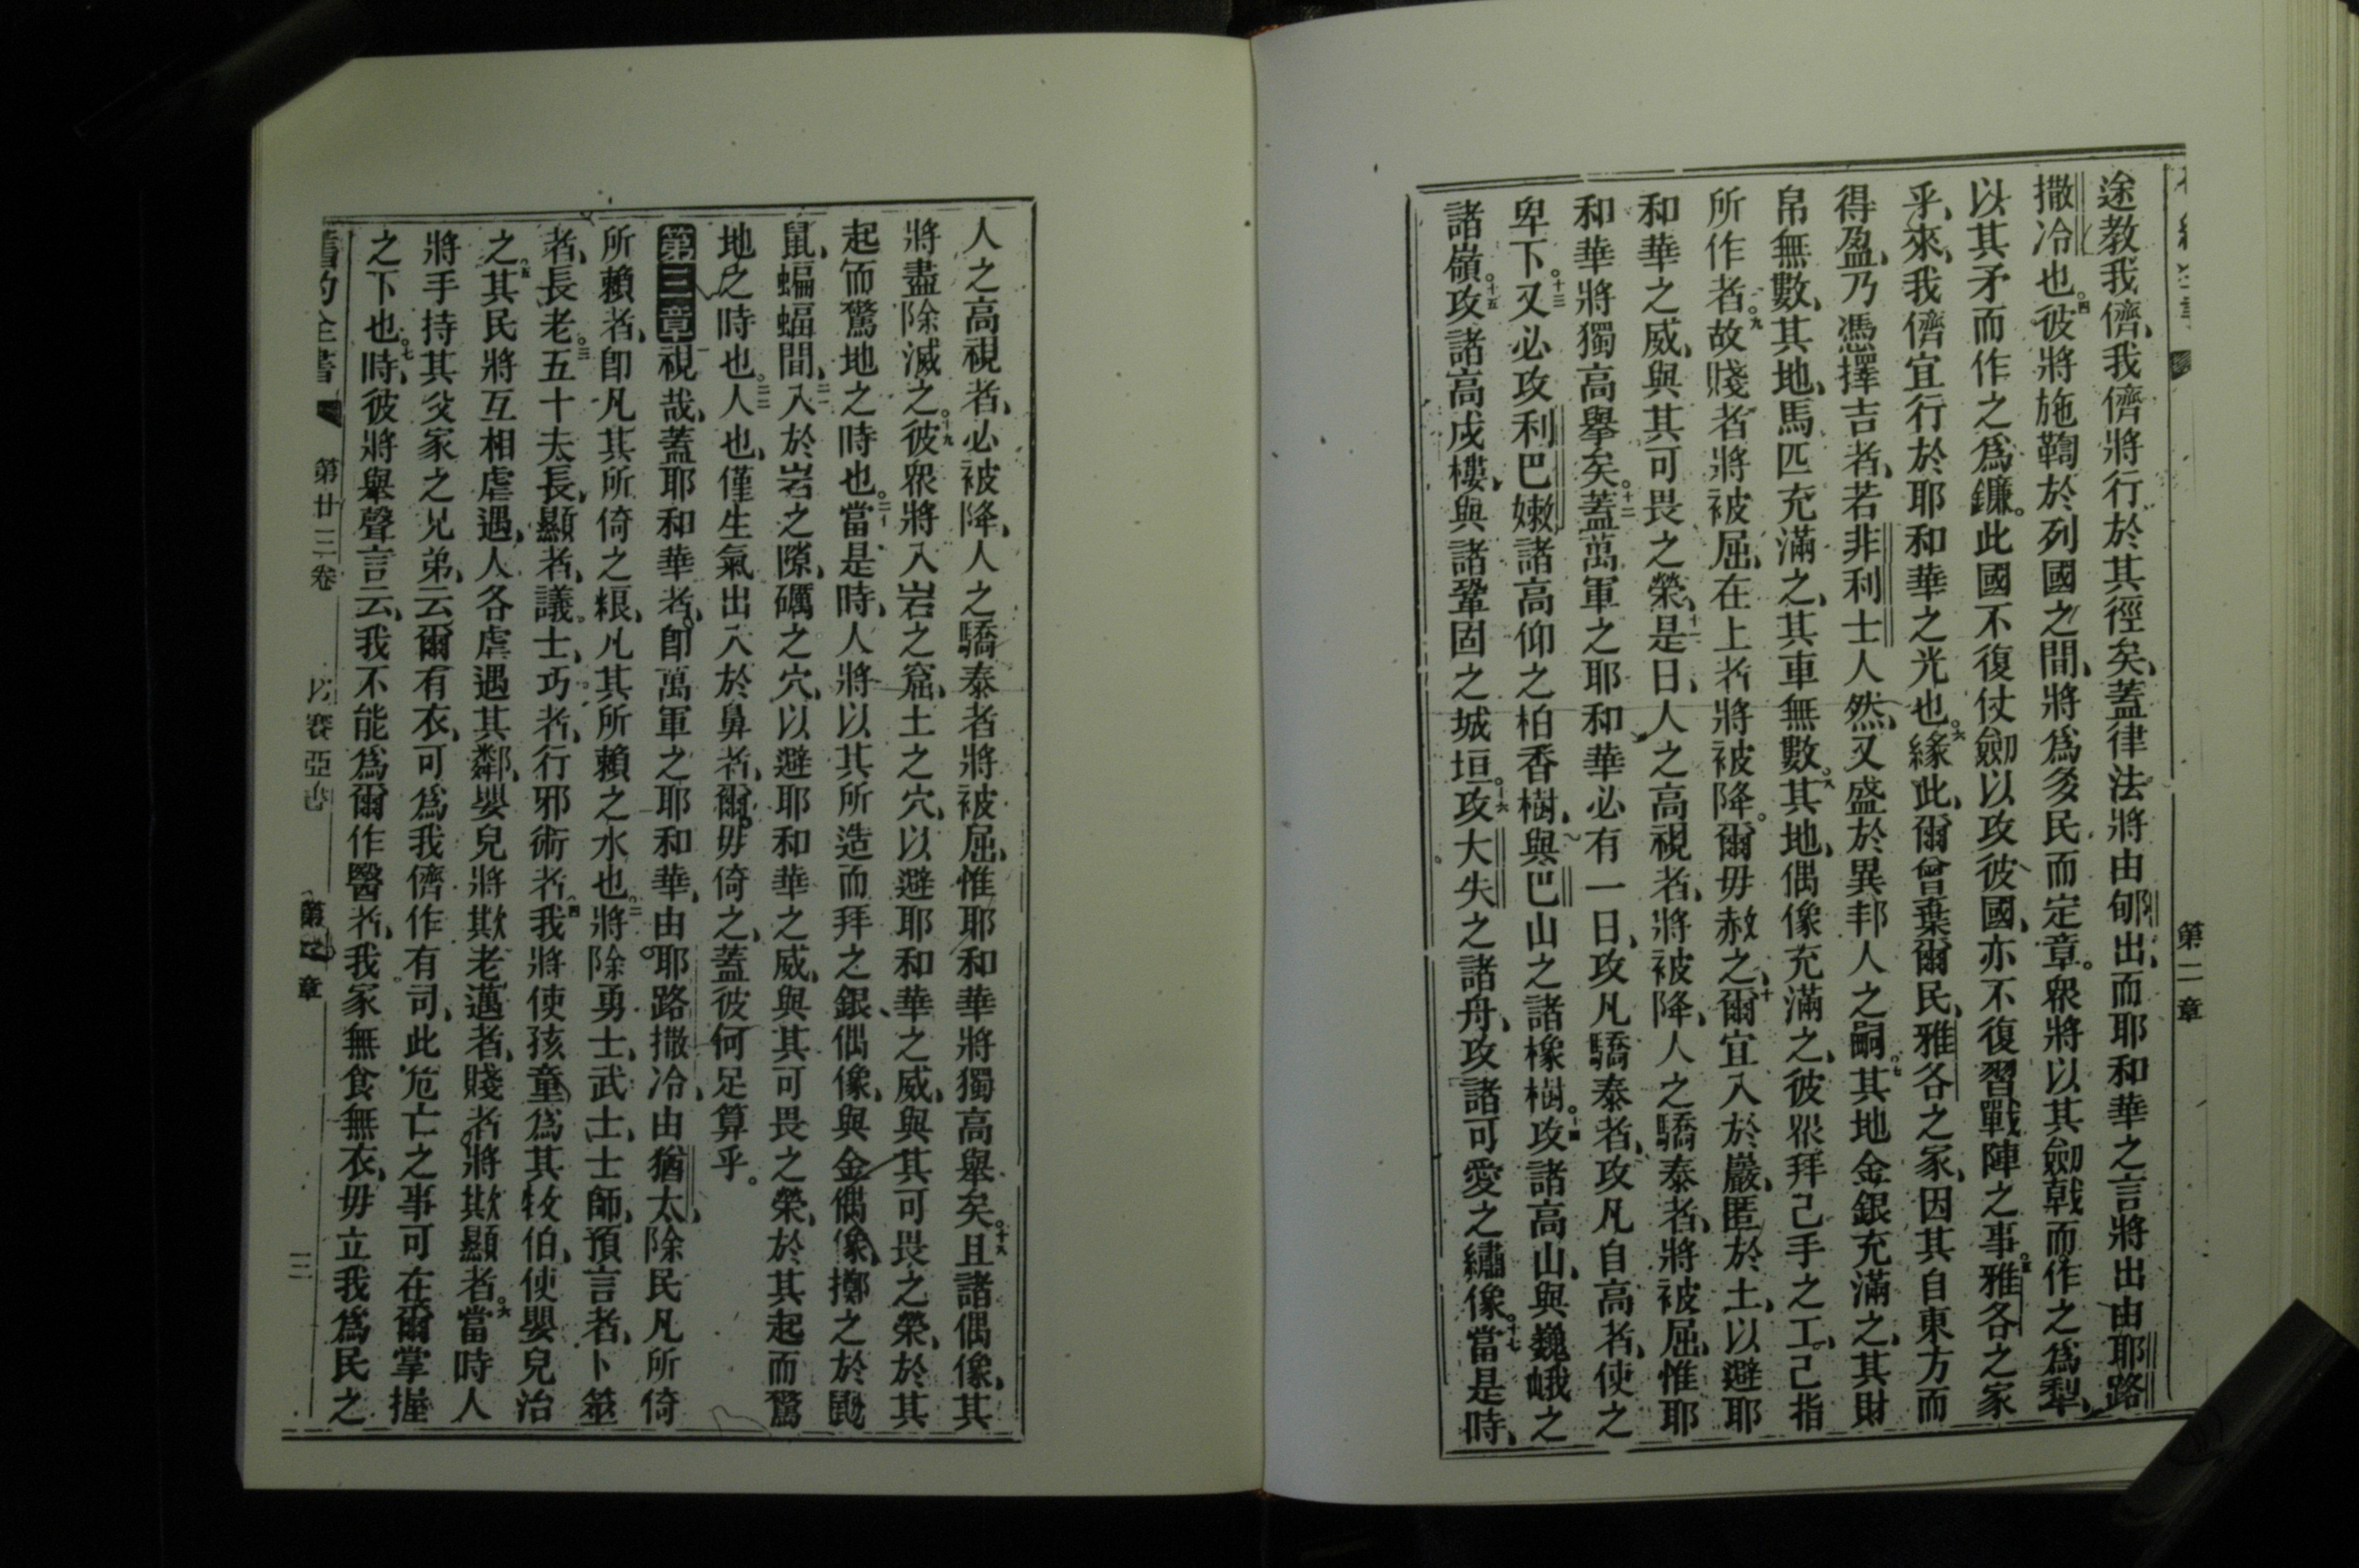 第二章
途教我儕、我儕將行於其徑矣、蓋律法將由郇出、而耶和華之言將出由耶路
撒冷也。四彼將施鞫於列國之間、將爲多民而定章。眾將以其劒戟而作之爲犁、
以其矛而作之爲鐮。此國不復仗劒以攻彼國、亦不復習戰陣之事。五雅各之家
乎、來、我儕宜行於耶和華之光也。六緣此、爾曾棄爾民、雅各之家、因其自東方而
得盈、乃憑擇吉者、若非利士人然、又盛於異邦人之嗣。七其地金銀充滿之、其財
帛無數、其地、馬匹充滿之、其車無數。八其地、偶像充滿之、彼眾拜己手之工、己指
所作者。九故賤者將被屈、在上者將被降。爾毋赦之、十爾宜入於巖、匿於土、以避耶
和華之威、與其可畏之榮、十一是日、人之高視者、將被降、人之驕泰者、將被屈、惟耶
和華將獨高擧矣。十二蓋萬軍之耶和華必有一日、攻凡驕泰者、攻凡自高者、使之
卑下。十三又必攻利巴嫩諸高仰之柏香樹、與巴山之諸橡樹。十四攻諸高山、與巍峨之
諸嶺。十五攻諸高戍樓、與諸鞏固之城垣。十六攻大失之諸舟、攻諸可愛之繡像。十七當是時、
人之高視者、必被降、人之驕泰者將被屈、惟耶和華將獨高舉矣。十八且諸偶像、其
將盡除滅之。十九彼眾將入岩之窟、土之穴、以避耶和華之威、與其可畏之榮、於其
起而驚地之時也。二十當是時、人將以其所造而拜之銀偶像、與金偶像、擲之於鼴
鼠、蝙蝠間、二一入於岩之隙、礪之穴、以避耶和華之威、與其可畏之榮、於其起而驚
地之時也。二二人也、僅生氣出入於鼻者、爾毋倚之、蓋彼何足算乎。
第三章一視哉、蓋耶和華者、卽萬軍之耶和華、由耶路撒冷、由猶太、除民凡所倚
所賴者、卽凡其所倚之粮、凡其所賴之水也。二將除勇士、武士、士師、預言者、卜筮
者、長老。三五十夫長、顯者、議士、巧者、行邪術者。四我將使孩童爲其牧伯、使嬰兒治
之。五其民將互相虐遇、人各虐遇其鄰、嬰兒將欺老邁者、賤者將欺顯者。六當時人
將手持其父家之兄弟、云、爾有衣、可爲我儕作有司、此危亡之事可在爾掌握
之下也。七時、彼將舉聲言云、我不能爲爾作醫者、我家無食無衣、毋立我爲民之
舊約全書 第廿三卷 以賽亞書 章 三